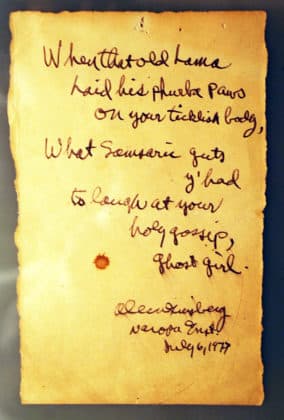 When that old Lama
laid his phoebe paws
on your ticklish body,
What Samsaric guts
y'had
to laugh at your
holy gossip,
Ghost girl.
Allen Ginsberg
Naropa Inst.
July 6, 1977